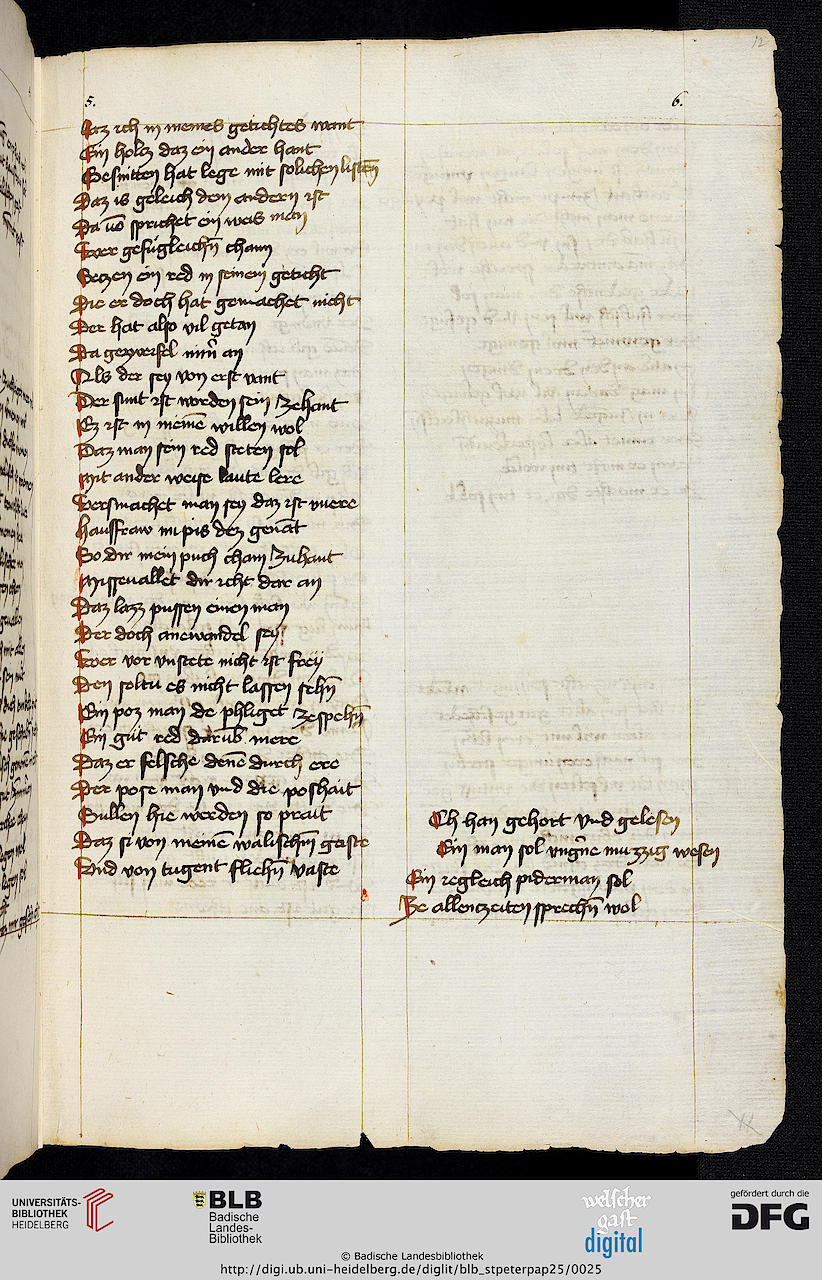 12
5.
6.
Daz ich in meines getichtes want
Ein holcz daz ein ander hant
Gesnitten hat lege mit solichen listen̄
Daz is geleich den andern ist
Da vō sprichet ein weis man
Wer gefugleichn̄ chann
Seczen ein red in seinem geticht
Die er doch hat gemachet nicht
Der hat also vil getan
Da gezweifel nim̄ an
Als der sey von erst vant
Der funt ist worden sein zehant
Ez ist in meinē willen wol
Daz man sein red steten sol
Mit ander weise laute lere
Versmachet man sey daz ist vnere
Hausfraw nu pis dez genāt
So dir mein puch cham zuhant
Missevallet dir icht dar an
Daz lazz pussen einen man
Der doch anewandel sey
Wer vor vnstete nicht ist frey
Den soltu es nicht lassen sehn̄
Ein poz man de phliget zespehn̄
Ein gut red darūb mere
Daz er felsche denē durch ere
Der pose man vnd die poshait
Sullen hie werden so prait
Daz si von meinē walischn̄ geiste
Und von tugent fliehn̄ vaste
Ich han gehort vnd gelesen
Ein man sol vngn̄e muzzig wesen
Ein iegleich piderman sol
Ze allenczeiten sprechn̄ wol
11
UNIVERSITÄTS-
BIBLIOTHEK
HEIDELBERG
BLB
Badische
Landes-
Bibliothek
welscher
gast
digital
gefördert durch die
DFG
© Badische Landesbibliothek
http://digi.ub.uni-heidelberg.de/diglit/blb_stpeterpap25/0025